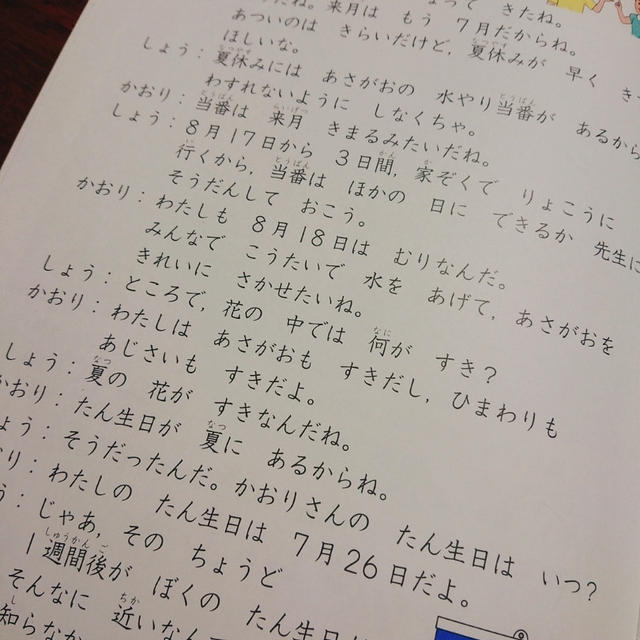 きたね。
だね。来月は もう 7月だからね。
あついのは きらいだけど, 夏休みが 早く
ほしいな。
しょう：夏休みには あさがおの 水やり当番が あるから
わすれないように しなくちゃ。
かおり：当番は 来月 きまるみたいだね。
しょう：8月17日から 3日間, 家ぞくで りょこうに
行くから, 当番は ほかの 日に できるか 先生に
そうだんして おこう。
かおり：わたしも 8月18日は むりなんだ。
みんなで こうたいで 水を あげて, あさがおを
きれいに さかせたいね。
しょう：ところで, 花の 中では 何が すき？
かおり：わたしは あさがおも すきだし, ひまわりも
あじさいも すきだよ。
しょう：夏の 花が すきなんだね。
かおり：たん生日が 夏に あるからね。
ょう：そうだったんだ。かおりさんの たん生日は いつ？
り：わたしの たん生日は 7月26日だよ。
う：じゃあ, その ちょうど
1週間後が ぼくの たん生日
そんなに 近いなんて
知らなか